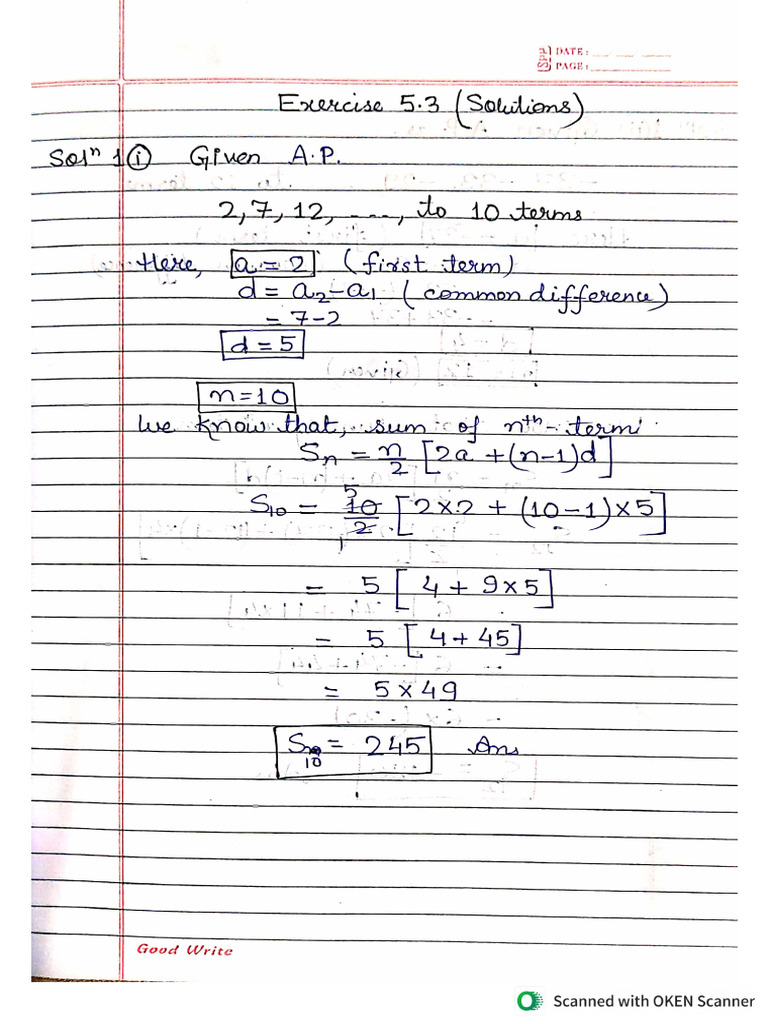 Spa DATE:
PAGE:
Exercise 5.3 (Solutions)
Solⁿ 1 (i) Given A.P.
2, 7, 12, ----, to 10 terms
Here, a = 2 (first term)
d = a₂-a₁ (common difference)
= 7-2
d = 5
n=10
We know that, sum of nᵗʰ- term
Sₙ = n/2 [2a + (n-1)d]
5
S₁₀ = 10/2 [2×2 + (10-1)×5]
1
= 5 [4 + 9×5]
= 5 [4+ 45]
= 5 × 49
S₁₀ = 245 Ans
Good Write
Scanned with OKEN Scanner